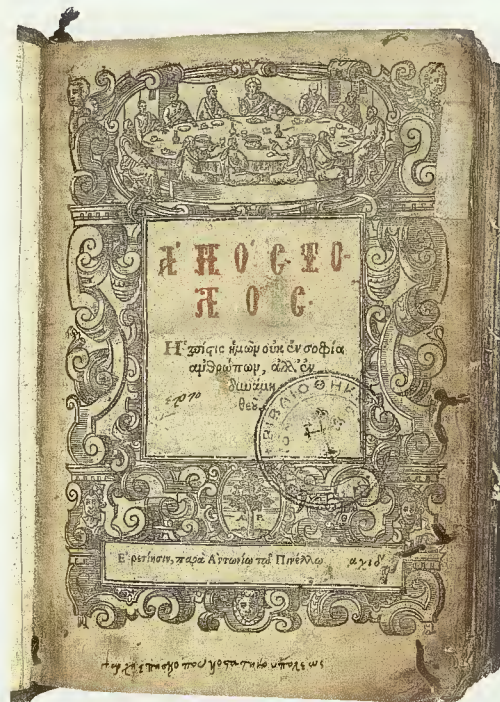 Ἀ Π Ό Σ Τ Ο-
Λ Ο Σ.
Ἡ πίςις ἡμῶν οὐκ ἐν σοφία
ανθρώπων, ἀλλ' ἐν
δυνάμη
θεῦ.
ΒΙΒΛΙΟΘΗΚ
A. P.
Ἐνετίησιν, παρὰ Ἀντωνίω τῷ Πινέλλω
αχιδ